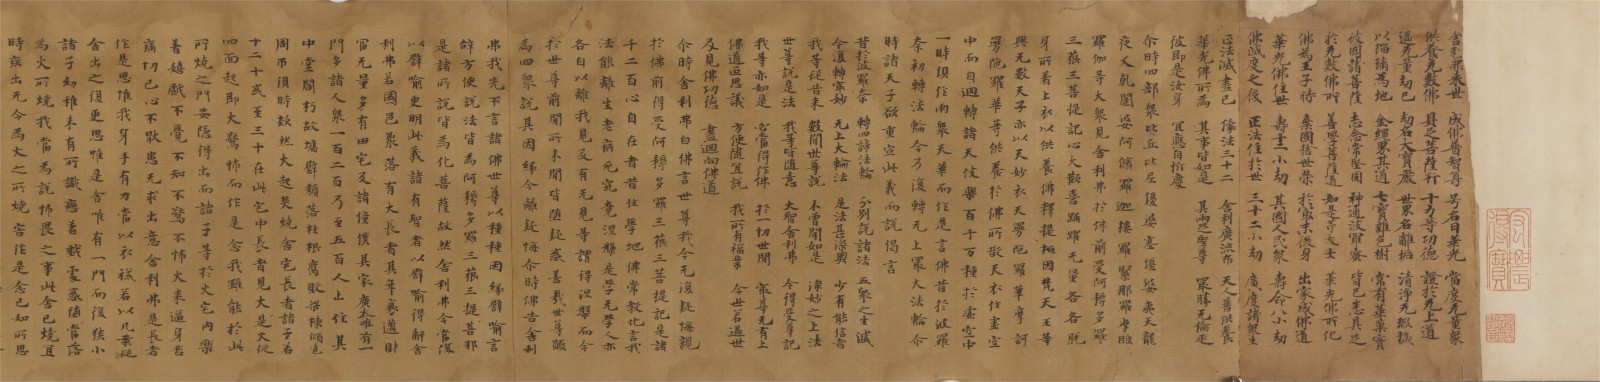 舍利弗來世 成佛普智尊 号名曰華光 當度无量眾
供養无數佛 具足菩薩行 十力等功德 證於无上道
過无量劫已 劫名大寶嚴 世界名離垢 清淨无瑕穢
以琉璃為地 金繩界其道 七寶雜色樹 常有華菓實
彼國諸菩薩 志念常堅固 神通波羅蜜 皆已悉具足
於无數佛所 善學菩薩道 如是等大士 華光佛所化
佛為王子時 棄國捨世榮 於最末後身 出家成佛道
華光佛住世 壽十二小劫 其國人民眾 壽命八小劫
佛滅度之後 正法住於世 三十二小劫 廣度諸眾生
正法滅盡已 像法三十二 舍利廣流布 天人普供養
華光佛所為 其事皆如是 其兩足聖尊 最勝无倫匹
彼即是汝身 宜應自欣慶
尒時四部眾比丘比丘尼優婆塞優婆夷天龍
夜叉乹闥婆阿脩羅迦樓羅緊那羅摩睺
羅伽等大眾見舍利弗於佛前受阿耨多羅
三藐三菩提記心大歡喜踊躍无量各各脫
身所着上衣以供養佛釋提桓因梵天王等
與无數天子亦以天妙衣天曼陀羅華摩訶
曼陀羅華等供養於佛所散天衣住虛空
中而自迴轉諸天伎樂百千万種於虛空中
一時俱作雨眾天華而作是言佛昔於波羅
柰初轉法輪今乃復轉无上最大法輪尒
時諸天子欲重宣此義而說偈言
昔於波羅柰 轉四諦法輪 分別說諸法 五眾之生滅
今復轉最妙 无上大輪法 是法甚深奧 少有能信者
我等從昔來 數聞世尊說 未曾聞如是 深妙之上法
世尊說是法 我等皆隨喜 大智舍利弗 今得受尊記
我等亦如是 必當得作佛 於一切世間 最尊无有上
佛道叵思議 方便隨宜說 我所有福業 今世若過世
及見佛功德 盡迴向佛道
尒時舍利弗白佛言世尊我今无復疑悔親
於佛前得受阿耨多羅三藐三菩提記是諸
千二百心自在者昔住學地佛常教化言我
法能離生老病死究竟涅槃是學无學人亦
各自以離我見及有无見等謂得涅槃而今
於世尊前聞所未聞皆墮疑惑善哉世尊願
為四眾說其因緣令離疑悔尒時佛告舍利
弗我先不言諸佛世尊以種種因緣譬喻言
辭方便說法皆為阿耨多羅三藐三菩提耶
是諸所說皆為化菩薩故然舍利弗今當復
以譬喻更明此義諸有智者以譬喻得解舍
利弗若國邑聚落有大長者其年衰邁財
富无量多有田宅及諸僮僕其家廣大唯有一
門多諸人眾一百二百乃至五百人止住其
中堂閣朽故墻壁頹落柱根腐敗梁棟傾危
周帀俱時欻然火起焚燒舍宅長者諸子若
十二十或至三十在此宅中長者見大火從
四面起即大驚怖而作是念我雖能於此
所燒之門安隱得出而諸子等於火宅內樂
著嬉戲不覺不知不驚不怖火來逼身苦
痛切己心不厭患无求出意舍利弗是長者
作是思惟我身手有力當以衣裓若以几案從
舍出之復更思惟是舍唯有一門而復狹小
諸子幼稚未有所識戀著戲處或當墮落
為火所燒我當為說怖畏之事此舍已燒宜
時疾出无令為火之所燒害作是念已如所思